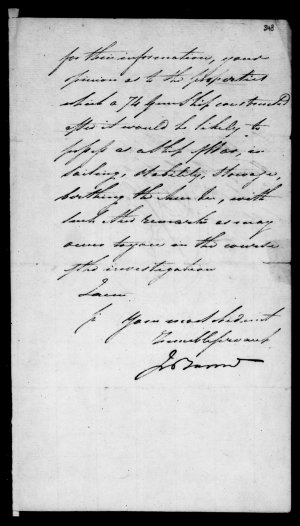 343
for their information, your
opinion as to the properties
which a 74 Gun Ship constructed
after it would be likely to
possess as a Ship of War, in
Sailing, Stability, Stowage,
berthing the Men &c, with
such other remarks as may
occur to you in the course
of the investigation
I am
Your most obedient
Humble Servant